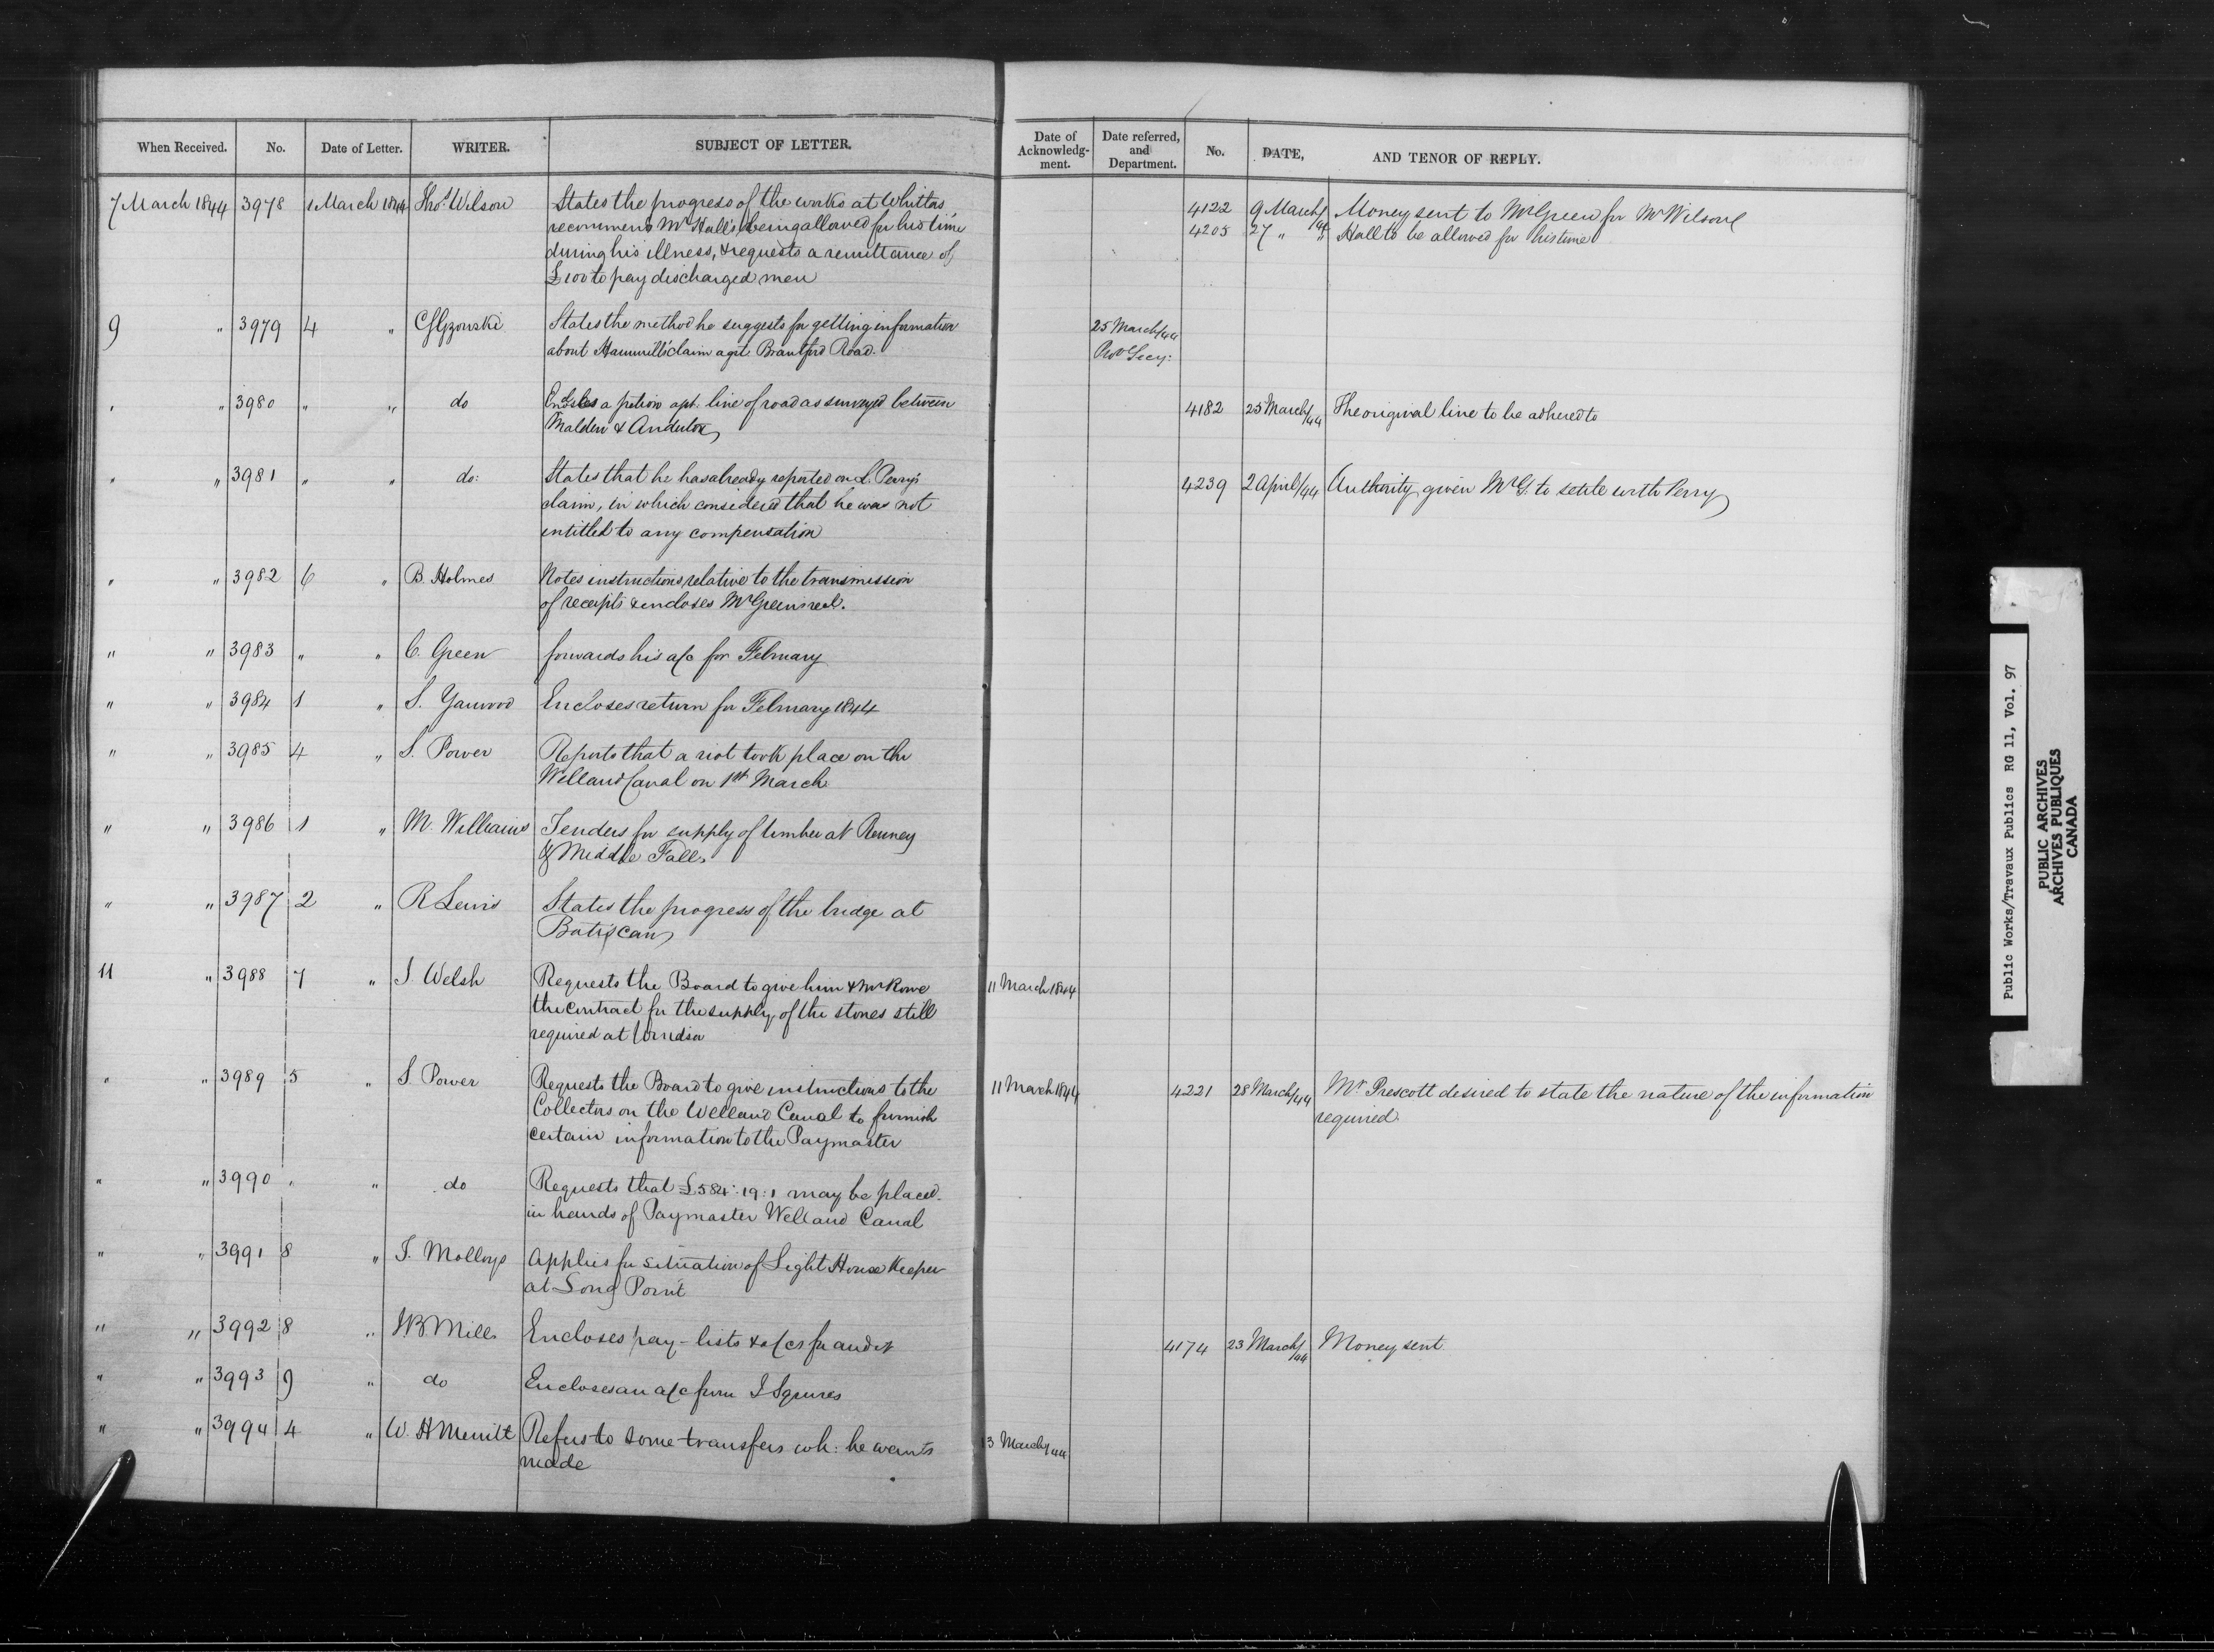 When Received. No. Date of Letter. WRITER. SUBJECT OF LETTER. Date of Acknowledg-ment. Date referred, and Department. No. DATE, AND TENOR OF REPLY.
7 March 1844 3978 1 March 1844 Thos. Wilson States the progress of the works at Whitby 4122 9 March/44 Money sent to Mr Green for Mr Wilson
recommends Mr Hall's being allowed for his time 4205 27 " " Hall to be allowed for his time
during his illness, & requests a remittance of
£100 to pay discharged men
9 " 3979 4 " CS Gzowski States the method he suggests for getting information 25 March/44
about claim agst Brantford Road. Prov Secy:
" " 3980 " " do Encloses a petion agt. line of road as surveyed between 4182 25 March/44 The original line to be adhered to
Malden &
" " 3981 " " do: States that he has already reported on L. Perry's 4239 2 April/44 Authority given Mr G. to settle with Perry
claim, in which considered that he was not
entitled to any compensation
" " 3982 6 " B. Holmes Notes instructions relative to the transmission
of receipts & encloses Mr Green's recd.
" " 3983 " " C. Green forwards his a/c for February
" " 3984 1 " S. Yarwood Encloses return for February 1844
" " 3985 4 " S. Power Reports that a riot took place on the
Welland Canal on 1st March
" " 3986 1 " M. Williams Tenders for supply of timber at Ranney
& Middle Falls
" " 3987 2 " R Lewis States the progress of the bridge at
Batiscan
11 " 3988 7 " J Welsh Requests the Board to give him & Mr Rowe 11 March 1844
the contract for the supply of the stones still
required at Windsor
" " 3989 5 " S. Power Requests the Board to give instructions to the 11 March 1844 4221 28 March/44 Mr. Prescott desired to state the nature of the information
Collectors on the Welland Canal to furnish required.
certain information to the Paymaster
" " 3990 " " do Requests that £584:19:1 may be placed
in hands of Paymaster Welland Canal
" " 3991 8 " J. Molloys Applies for situation of Light House Keeper
at Long Point
" " 3992 8 " Mills Encloses pay-lists & a/cs for audit 4174 23 March/44 Money sent.
" " 3993 9 " do Encloses an a/c from J Squires
" " 3994 4 " W. H Merritt Refers to some transfers wh: he wants 13 March/44
made
Public Works/Travaux Publics RG 11, Vol. 97
PUBLIC ARCHIVES
ARCHIVES PUBLIQUES
CANADA